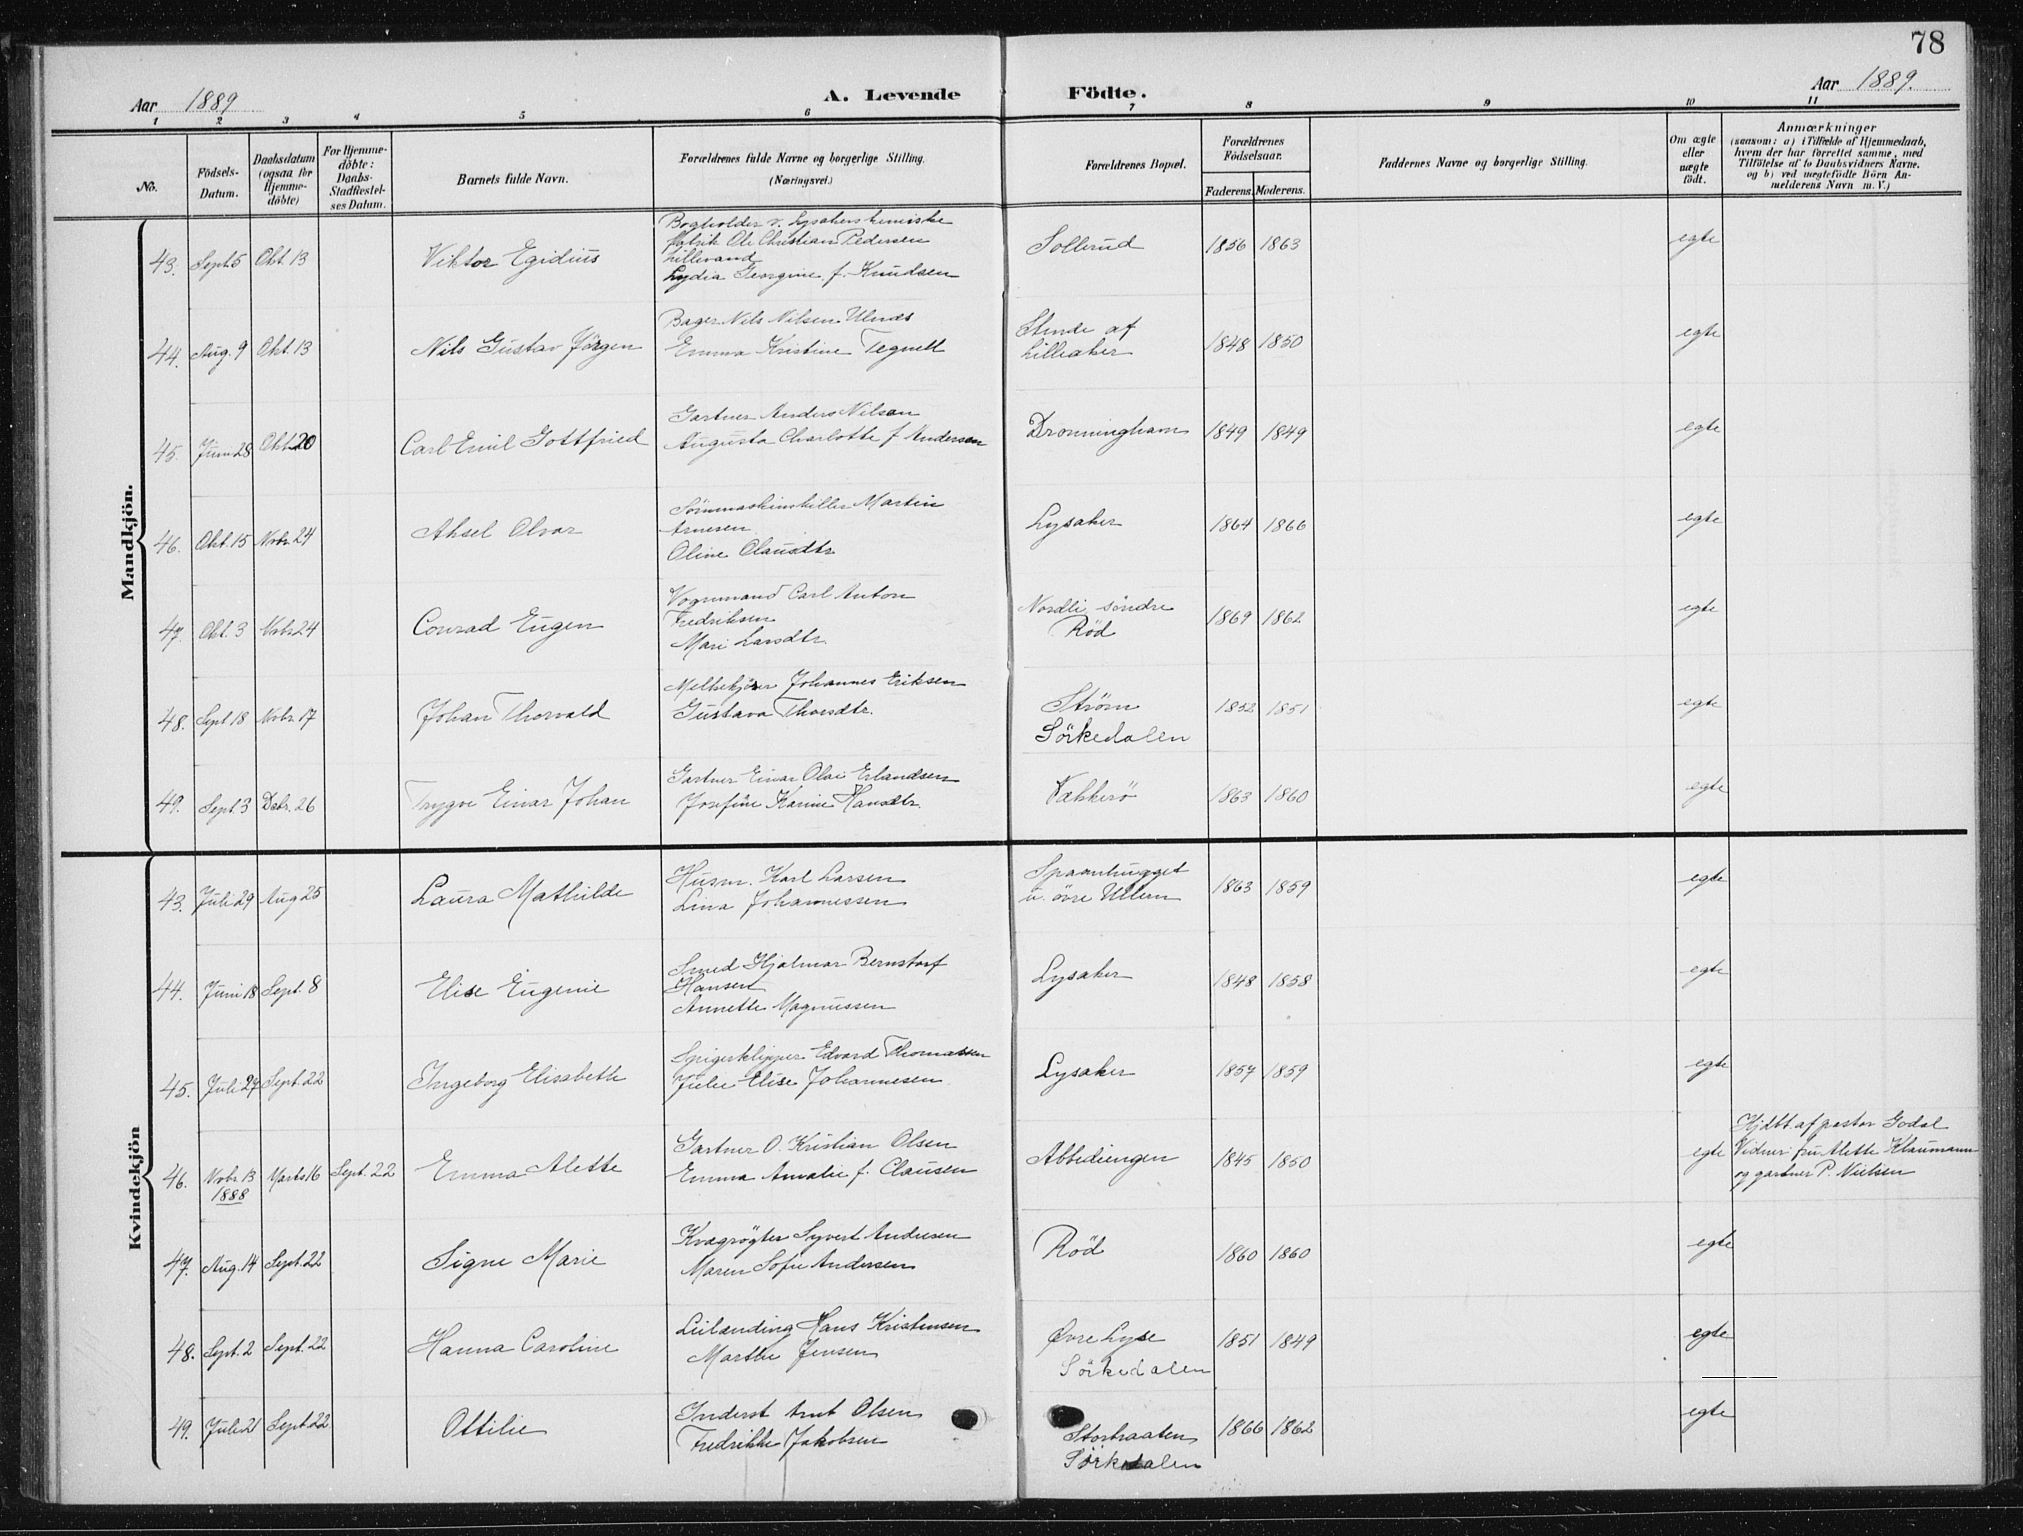 78
Aar 1889
A. Levende
Födte.
Aar 1889.
1 2 3 4 5 6 7 8 9 10 11
No.
Födsels-
Datum.
Daabsdatum
(ogsaa for
Hjemme-
döbte)
For Hjemme-
döbte:
Daabs-
Stadfæstel-
ses Datum.
Barnets fulde Navn.
Forældrenes fulde Navne og borgerlige Stilling.
(Næringsvei.)
Forældrenes Bopæl.
Forældrenes
Födselsaar.
Faderens. Moderens.
Faddernes Navne og borgerlige Stilling.
Om ægte
eller
uægte
födt.
Anmærkninger
(saasom: a) i Tilfælde af Hjemmedaab,
hvem der har forrettet samme, med
Tilföielse af to Daabsvidners Navne,
og b) ved uægtefödte Börn An-
melderens Navn m. V.)
Mandkjön.
Bogholder v. Lysakers kemiske
fabrik Ole Christian Pedersen
Lillevand
Lydia Georgine f. Knudsen
43. Sept. 5 Okt. 13 Viktor Egidius Sollerud 1856 1863 egte
Bager Nils Nilsen Ulnæs
44. Aug. 9 Okt. 13 Nils Gustav Jörgen Emma Kristine Tegnell 1848 1850 egte
af
Lilleaker
Gartner Anders Nilsen
45. Juni 28 Okt. 20 Carl Emil Gottfried Augusta Charlotte f Andersen Dronningham 1849 1849 egte
Martin
Arnesen
46. Okt. 15 Novbr. 24 Aksel Olvar Oline Clausdtr Lysaker 1864 1866 egte
Vognmand Carl Anton
Fredriksen
47. Okt. 3 Novbr. 24 Conrad Eugen Mari Larsdtr. Nordli söndre 1869 1862 egte
Röd
Melkekjörer Johannes Eriksen
48. Sept 18 Novbr. 17 Johan Thorvald Gustava Thorsdtr. Ström 1852 1851 egte
Sörkedalen
Gartner Einar Olai Erlandsen
49. Sept. 3 Debr. 26 Trygve Einar Johan Josefine Karine Hansdtr. Vækkerö 1863 1860 egte
Kvindekjön
Husm. Karl Larsen
43. Juli 29 Aug 25 Laura Mathilde Lina Johannessen Spaanhugget 1863 1859 egte
u. övre Ullern
Smed Hjalmar Bernstorf
Hansen
44. Juni 18 Sept. 8 Elise Eugenie Annette Magnussen Lysaker 1848 1858 egte
Spigerklipper Edvard Thomassen
45. Juli 27 Sept. 22 Ingeborg Elisabeth Julie Elise Johannesen Lysaker 1857 1859 egte
Gartner O. Kristian Olsen
46. Novbr. 13 Marts 16 Sept. 22 Emma Alette Emma Amalie f. Clausen Abbediengen 1845 1850 egte
1888
Hjdbt. af pastor Godal
Vidner: fru Alette Klaumann
og gartner P. Nielsen
Kvægrögter Syvert Andresen
47. Aug. 14 Sept. 22 Signe Marie Maren Sofie Andersen Röd 1860 1860 egte
Leilænding Hans Kristensen
48. Sept. 2 Sept. 22 Hanna Caroline Marthe Jensen Øvre Lyse 1851 1849 egte
Sörkedalen
Inderst Arnt Olsen
49. Juli 21 Sept. 22 Ottilie Fredrikke Jakobsen Storbraaten 1866 1862 egte
Sörkedalen